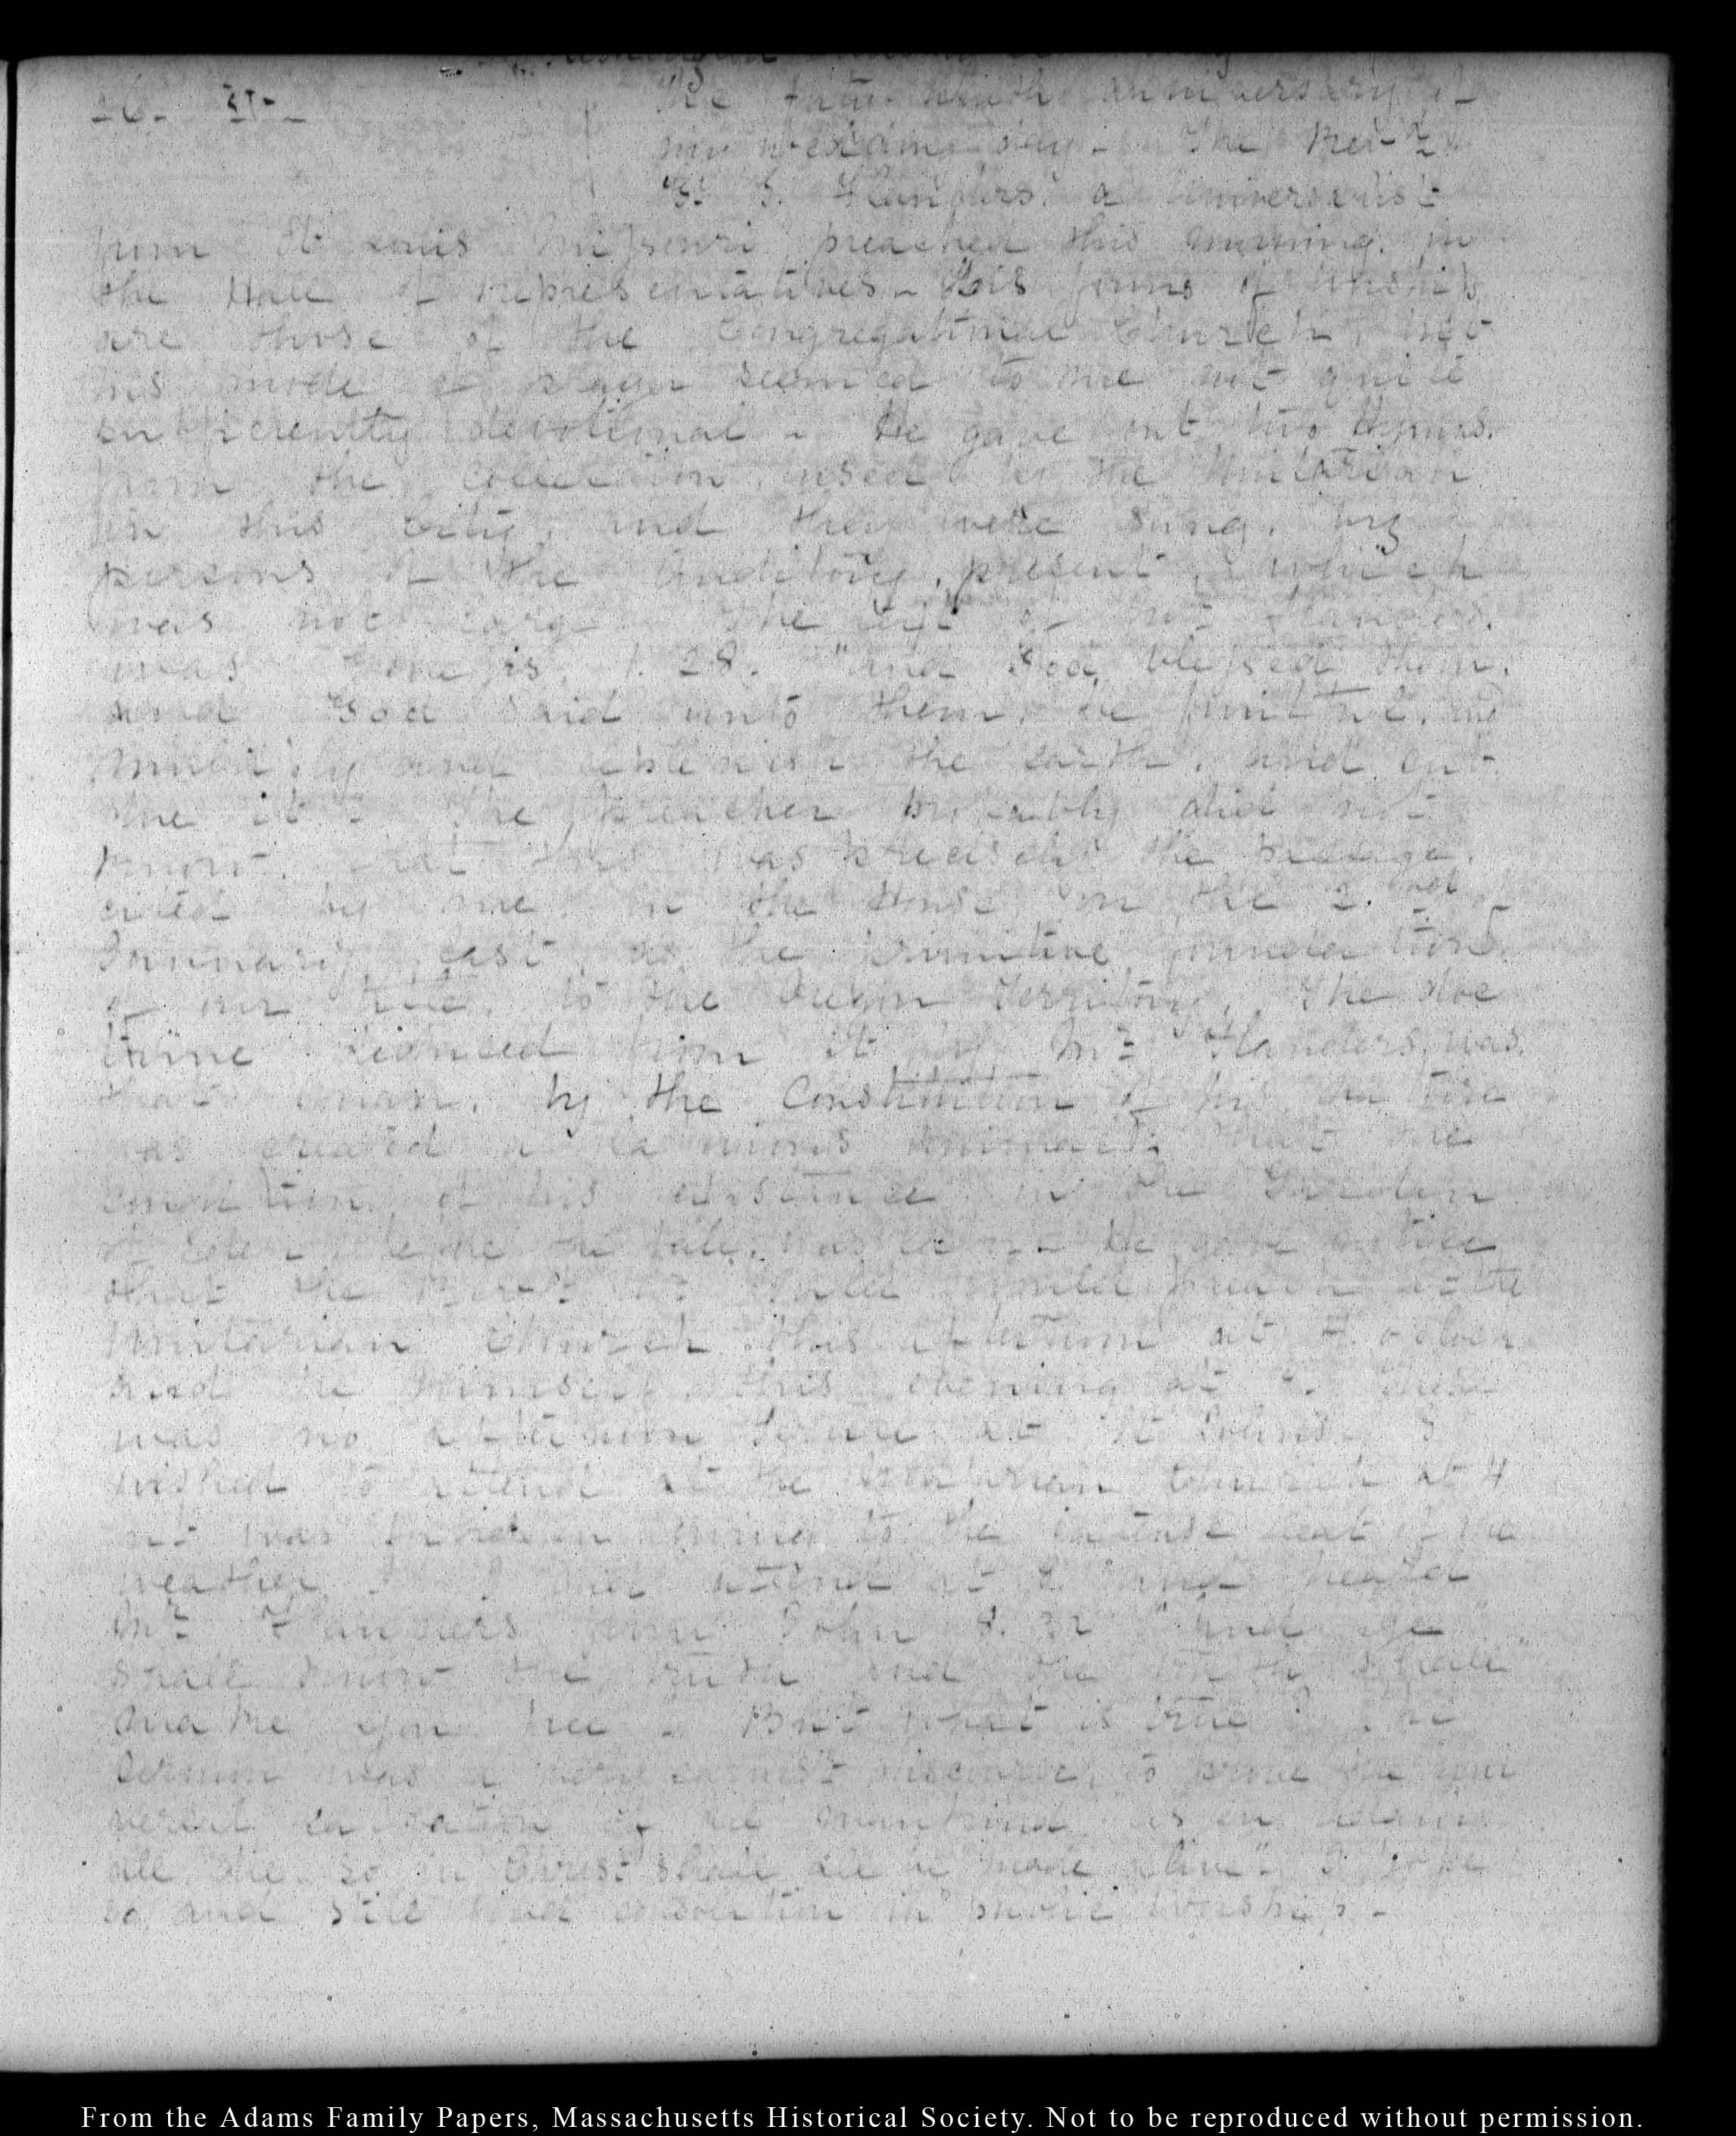 26. VII.
The forty-ninth anniversary of
my wedding day. The Revd.
G. S. Flanders, a Universalist
from St Louis Missouri preached this morning in
the Hall of representatives. His forms of worship
are those of the Congregational Church, but
his mode of prayer seemed to me not quite
sufficiently devotional. He gave out two Hymns.
from the collection used by the Unitarian
in this City, and they were sung, by
persons of the Auditory, present, which
was not large. The text of Mr Flanders,
was Genesis 1. 28. "And God blessed them,
and God said unto them, be fruitful, and
multiply and replenish the earth, and sub
due it". The preacher probably did not
know that this was precisely the passage,
cited by me in the House on the 2.nd of
January last, as the primitive foundation
of our title, to the Oregon Territory. The doc
trine deduced from it by Mr Flanders, was
that man, by the Constitution of his nature
was created a laborious animal; that the
condition of his existence in the Garden
of Eden before the fall, was labor. He gave notice
that the Revd. Mr would preach at the
Unitarian Church this afternoon at 4. o'clock
and he himself, this evening at 8. There
was no afternoon service at St John's. I
wished to attend at the Unitarian Church at 4
but was owing to the intense heat of the
weather. I did attend at 8. and heard
Mr Flanders from John 8. 32 "And ye
shall know the truth and the truth shall
make you free". But what is true? The
Sermon was a very earnest discourse, to prove the uni
versal salvation of all mankind. As in Adam
all die, so in Christ shall all be made alive". I hope
so and still in public worship.
From the Adams Family Papers, Massachusetts Historical Society. Not to be reproduced without permission.